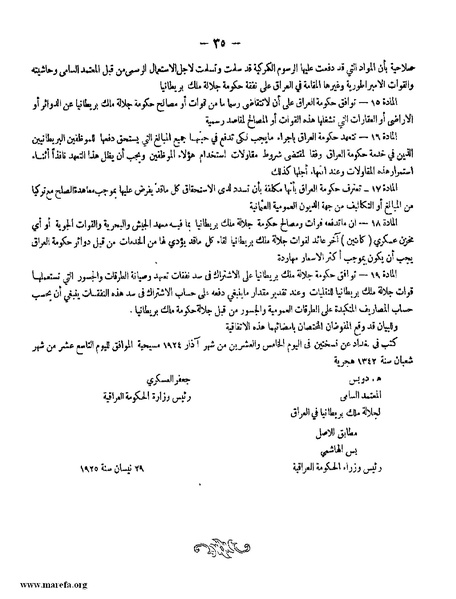 — ٣٥ —
صلاحية بأن المواد التي قد دفعت عليها الرسوم الكمركية قد سلمت وتسلمت لاجل الاستعمال الرسمي من قبل المعتمد السامي وحاشيته
والقوات الامبراطورية وغيرها المقامة في العراق على نفقة حكومة جلالة ملك بريطانيا
المادة ١٥ – توافق حكومة العراق على أن لا تتقاضى رسما ما من قوات أو مصالح حكومة جلالة ملك بريطانيا عن الدوائر أو
الاراضي أو العقارات التي تشغلها هذه القوات أو المصالح لمقاصد رسمية
المادة ١٦ – تتعهد حكومة العراق باجراء مايجب لكي تدفع في حينها جميع المبالغ التي يستحق دفعها للموظفين البريطانيين
الذين في خدمة حكومة العراق وفقا لمقتضى شروط مقاولات استخدام هؤلاء الموظفين ويجب أن يظل هذا التعهد نافذاً أثناء
استمرار هذه المقاولات وعند انتهاء أجلها كذلك
المادة ١٧ – تعترف حكومة العراق بأنها مكلفة بأن تسدد لدى الاستحقاق كل ماقد يفرض عليها بموجب معاهدة الصلح مع تركيا
من المبالغ أو التكاليف من جهة الديون العمومية العثمانية
المادة ١٨ – ان ماتدفعه قوات ومصالح حكومة جلالة ملك بريطانيا بما فيه معهد الجيش والبحرية والقوات الجوية أو أي
مخزن عسكري (كانتين) آخر عائد لقوات جلالة ملك بريطانيا لقاء كل ماقد يؤدي لها من الخدمات من قبل دوائر حكومة العراق
يجب أن يكون بموجب أكثر الاسعار مهاودة
المادة ١٩ – توافق حكومة جلالة ملك بريطانيا على الاشتراك في سد نفقات تعبيد وصيانة الطرقات والجسور التي تستعملها
قوات جلالة ملك بريطانيا للنقليات وعند تقدير مقدار ماينبغي دفعه على حساب الاشتراك في سد هذه النفقات ينبغي أن يحسب
حساب المصاريف المتكبدة على الطرقات العمومية والجسور من قبل جلالة حكومة ملك بريطانيا .
وللبيان قد وقع المفوضان المختصان بامضائهما هذه الاتفاقية
كتب في بغداد عن نسختين في اليوم الخامس والعشرين من شهر آذار ١٩٢٤ مسيحية الموافق لليوم التاسع عشر من شهر
شعبان سنة ١٣٤٢ هجرية
ه . دوبس
جعفر العسكري
المعتمد السامي
رئيس وزارة الحكومة العراقية
لجلالة ملك بريطانيا في العراق
مطابق للاصل
يس الهاشمي
رئيس وزراء الحكومة العراقية
٢٩ نيسان سنة ١٩٢٥
www.marefa.org